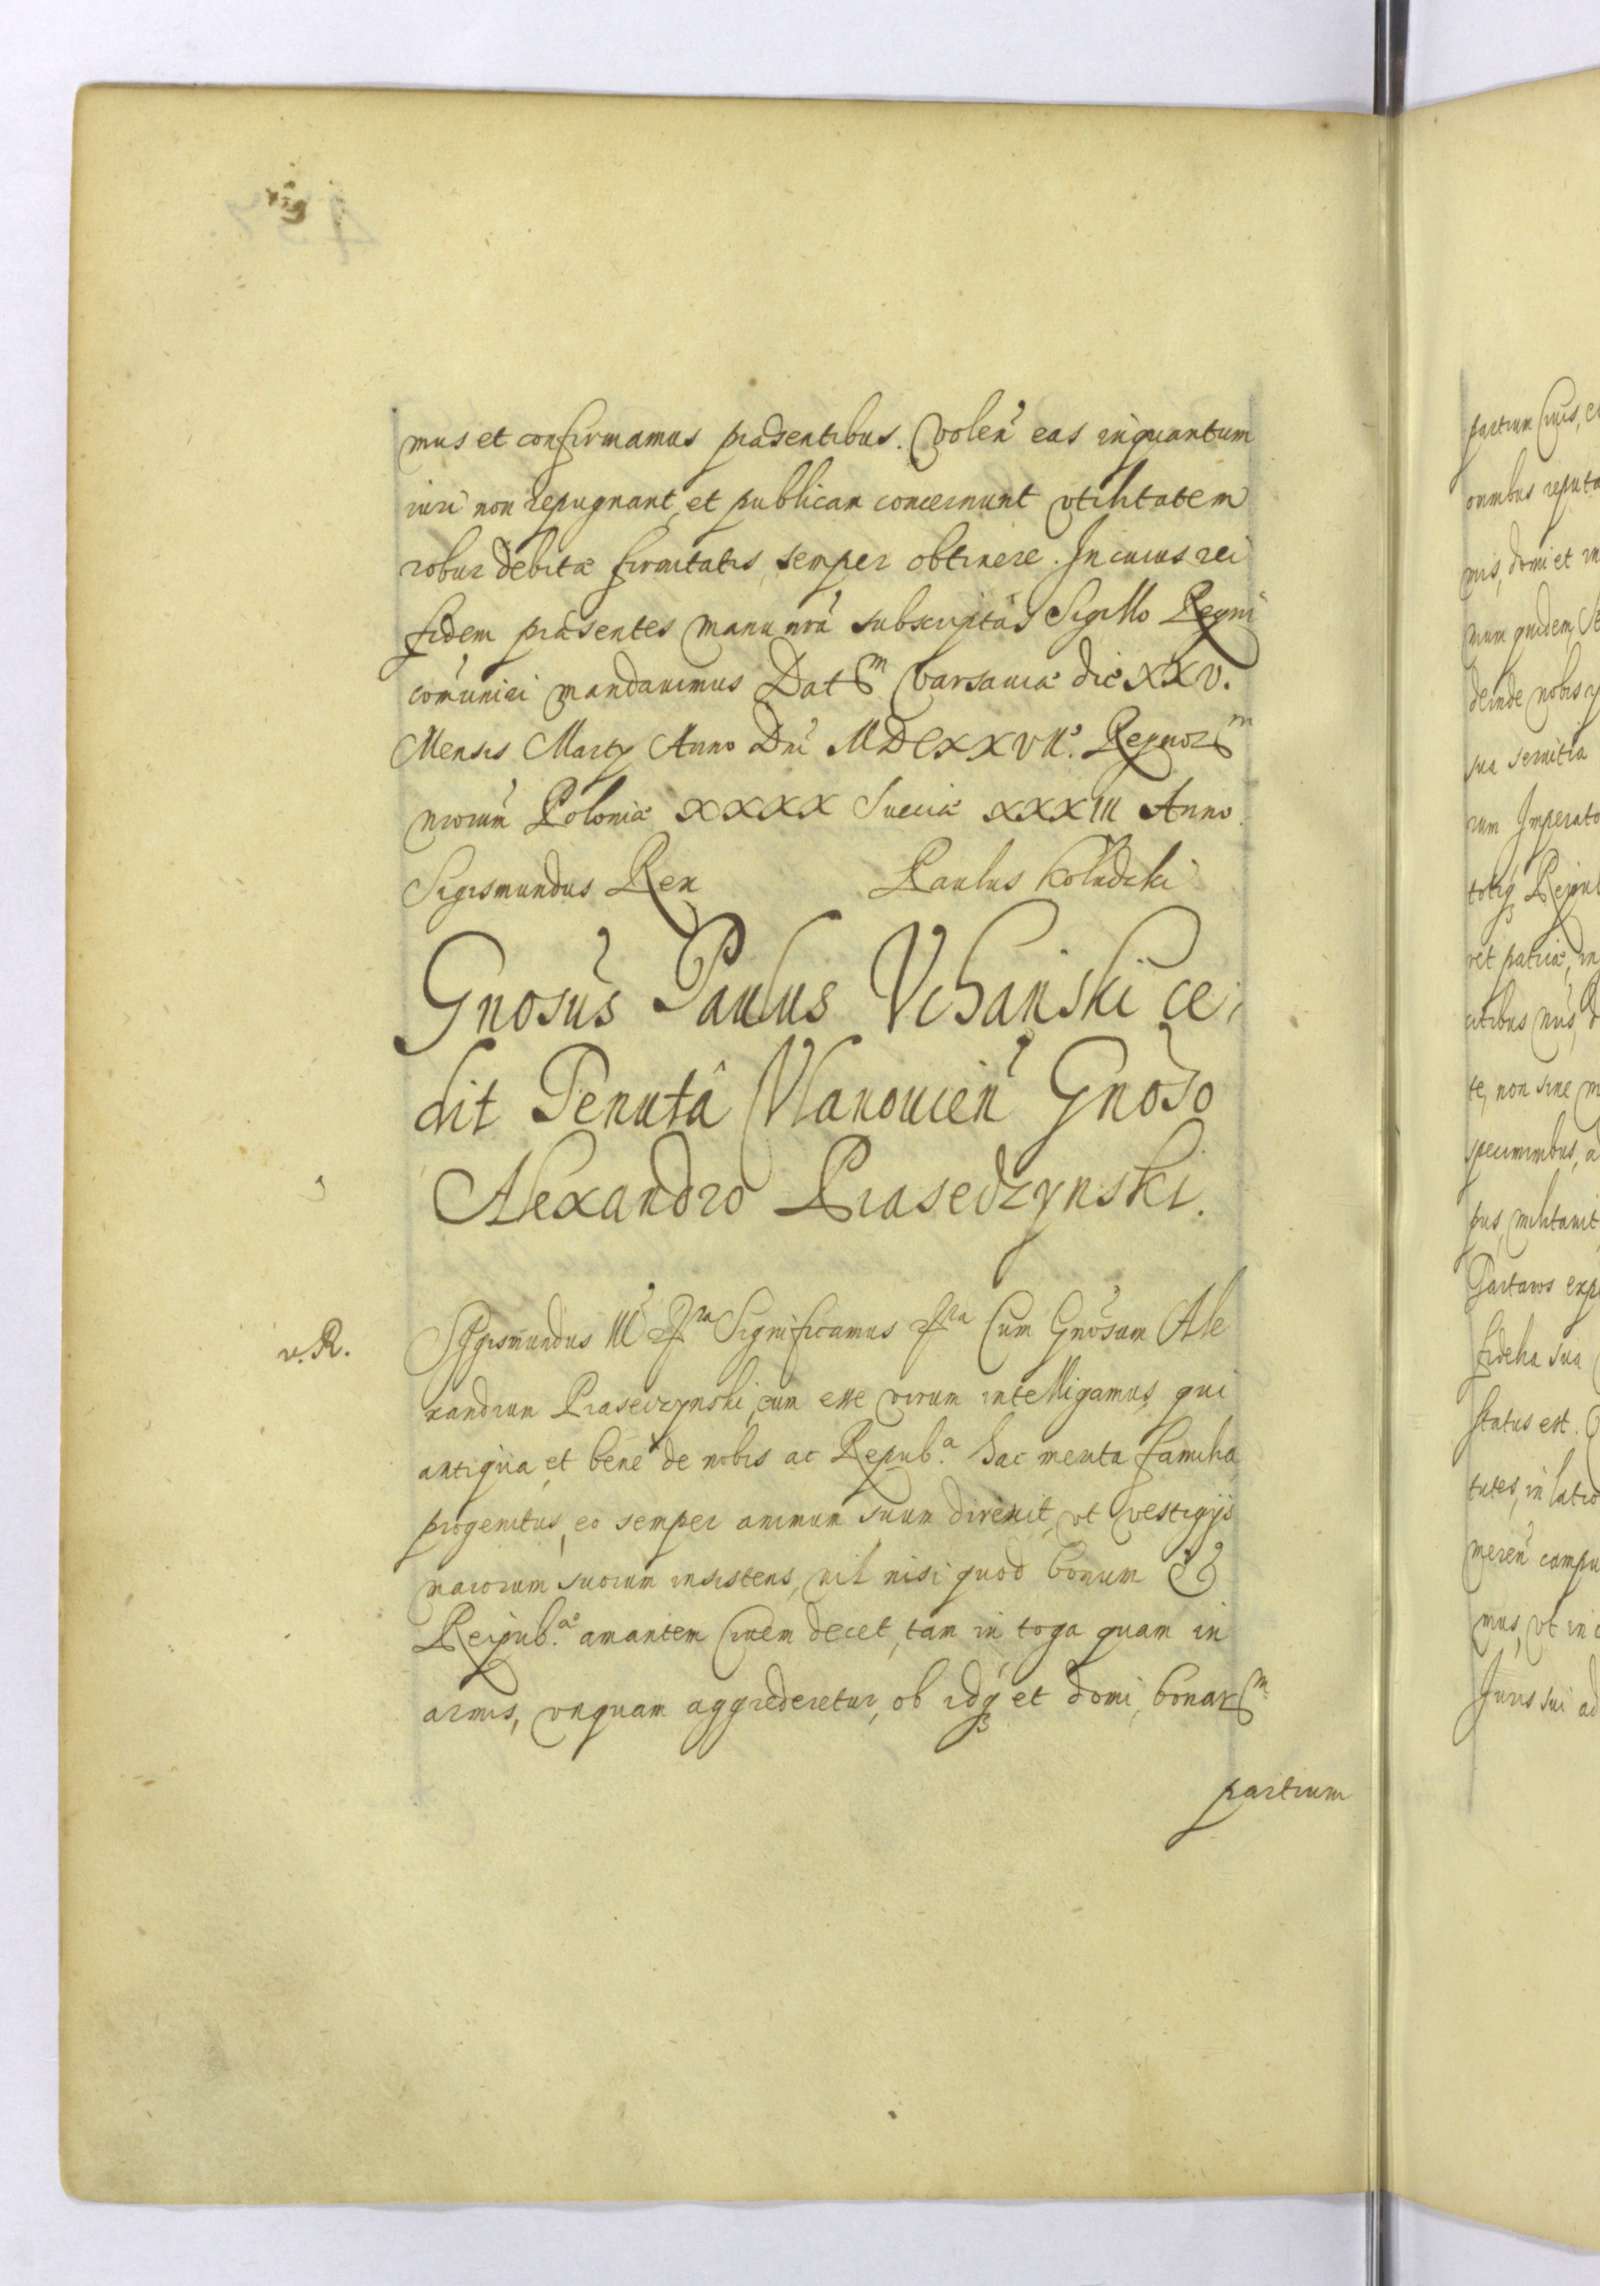 mus et confirmamus præsentibus. Volen̄ eas inquantum
iuri non repugnant, et publicam concernunt vtilitatem
robur debitæ firmitatis semper obtinere. In cuius rei
fidem præsentes manu nr̄a subscriptas Sigillo Regni
com̄uniri mandauimus Datum Varsauiæ die XXV.
Mensis Martij Anno Dn̄i MDCXXVII°. Regnorum
nrorum̄ Poloniæ XXXX Sueciæ XXXIII Anno.
Sigismundus Rex Paulus Kołudzki
Gnosus̄ Paulus Vchański ce,
dit Tenutâ Vlanouien̄ Gnōso
Alexandro Piaseczynski.
v. R. Sigismundus III etra Significamus etra Cum Gnōsum Ale
xandrum Piaseczynski, eum esse virum intelligamus, qui
antiqua, et bene de nobis ac Repub.a hac merita familia
progenitus, eo semper animum suum direxit, vt vestigijs
maiorum suorum insistens, nil nisi quod bonum et
Reipub.æ amantem Ciuem decet, tam in toga quam in
armis, vnquam aggrederetur, ob idq3 et domi, bonarum
partium
partium Ciuis, e
omnibus reputa
mis, domi et in
num quidem, St
deinde nobis
sua seruitia
rum Imperato
totiq3 Reipub
ret patriæ, in
te, non sine m
speciminibus, a
pus, militauit
Tartaros exp
fidelia sua
status est.
tutes, in latio
meren̄ campu
mus, vt in
Juris sui ad